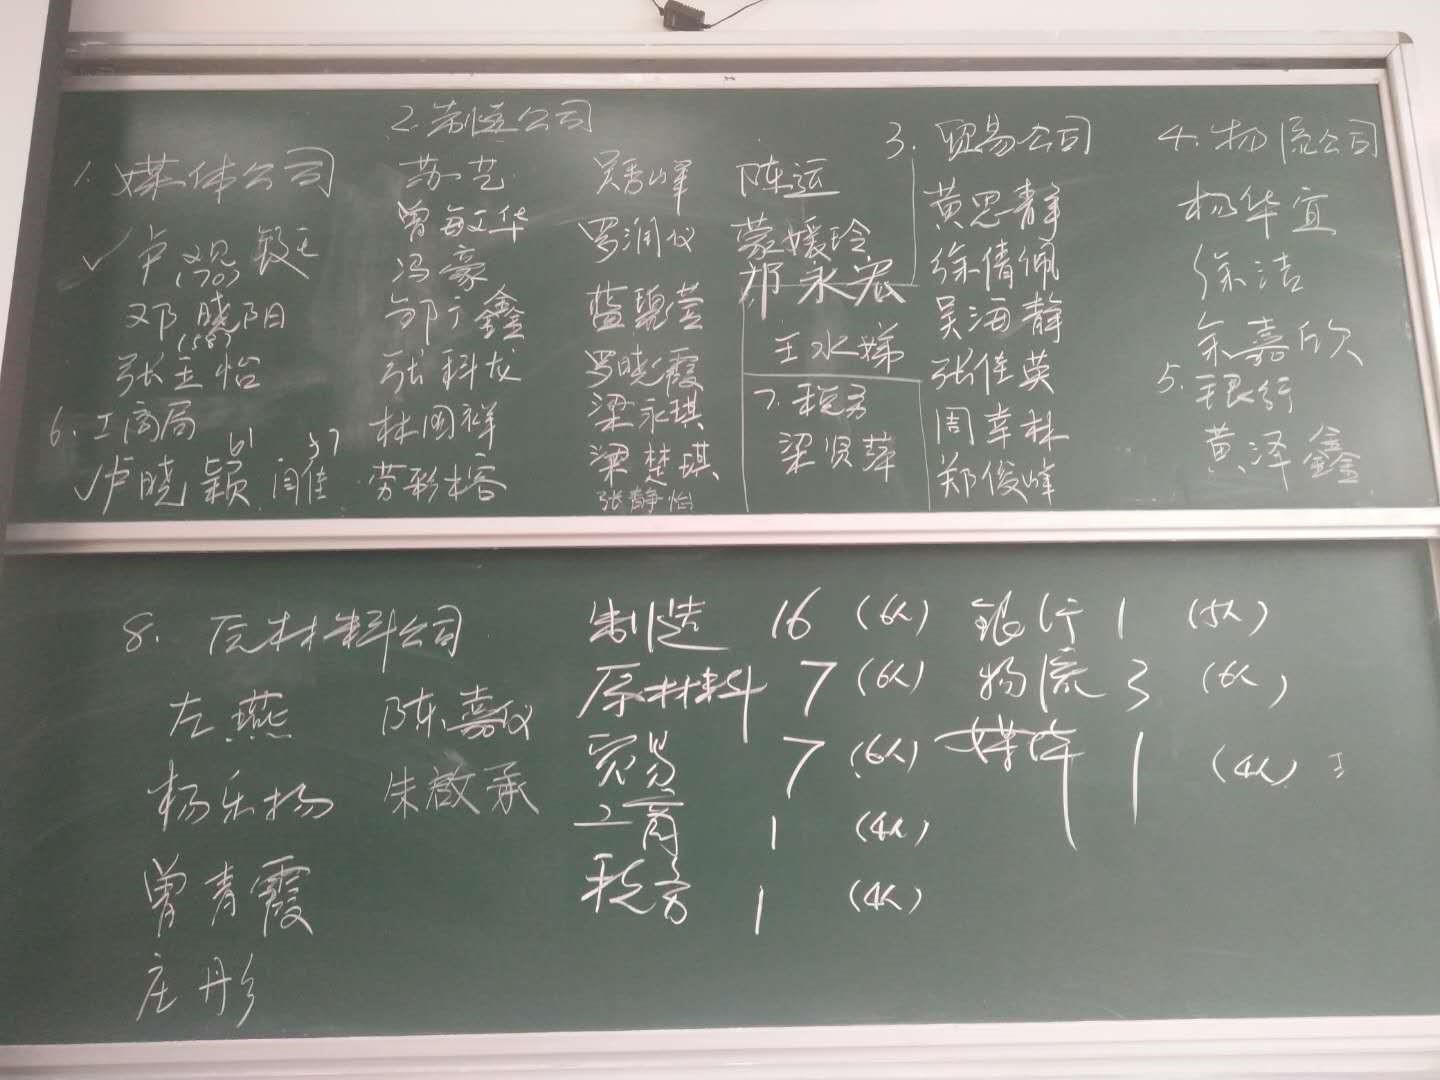 1. 媒体公司
✓ 卢观钑
(70)
邓晓阳
(58)
张玉怡
6. 工商局
61 57
✓卢晓颖 闫佳
2. 制造公司
苏艺
曾敏华
冯豪
邹广鑫
张科龙
林国祥
劳彩榕
吴秀峰
罗润仪
蓝碧萱
罗晓霞
梁永琪
梁楚琪
张静怡
陈运
蒙媛玲
邓永宏
王水娣
7. 税务
梁贤萍
3. 贸易公司
黄思静
徐倩佩
吴海静
张佳英
周幸林
郑俊峰
4. 物流公司
杨华宜
徐洁
余嘉欣
5. 银行
黄泽鑫
8. 原材料公司
左燕 陈嘉仪
杨乐扬 朱啟承
曾青霞
庄彤
制造 16 (6人) 银行 1 (5人)
原材料 7 (6人) 物流 3 (6人)
贸易 7 (6人) 媒体 1 (4人)
工商 1 (4人)
税务 1 (4人)